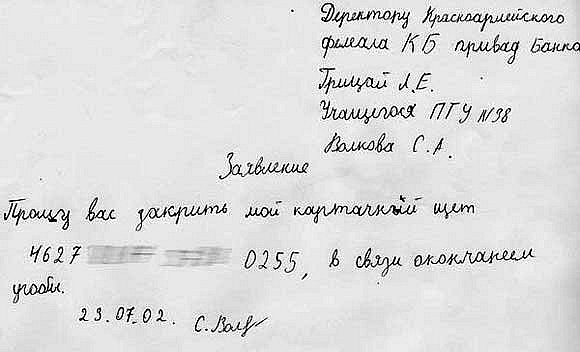 Деректору Красноармейского
фелеала КБ привад Банка
Грицай Л.Е.
Учащегося ПТУ №38
Волкова С.А.
Заявление
Прошу вас закрить мой картачний щет
4627 0255, в связи оканчанеем
угоби.
23.07.02. С.Волк